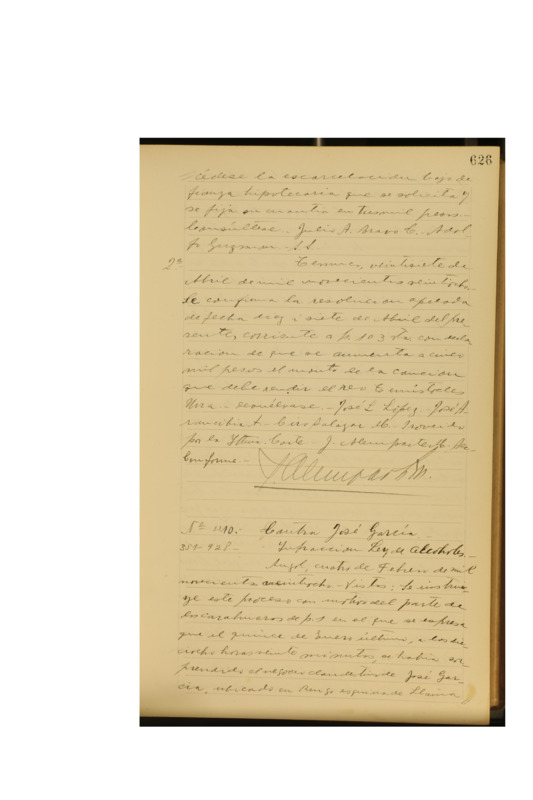 626
cédese la excarcelación bajo de
fianza hipotecaria que se solicita y
se fija su cuantía en tres mil pesos.-
Consúltese.- Julio A. Bravo C.- Adol
fo Guzman.- S.S.
2ª Temuco, veintisiete de
Abril de mil novecientos veintiocho.-
Se confirma la resolución apelada
de fecha diez i siete de Abril del pre-
sente, corriente a fs. 103 vta, con decla
racion de que se aumenta a cinco
mil pesos el monto de la caucion
que debe rendir el reo Temístocles
.- Devuélvase.- José L. López.- José A.
.- Ciro Salazar M.- Proveido
por la Iltma. Corte.- J. Alemparte M.
Conforme.-
J. Alemparte M.
Nº 1110.- Contra José García
251-928- Infraccion Ley de Alcoholes.-
Angol, cuatro de Febrero de mil
novecientos veintiocho.- Vistos: Se instru-
ye este proceso con motivo del parte de
los carabineros de fs. 1 en el que se expresa
que el quince de Enero último, a las die
ciocho horas veinte minutos, se habia sor
prendido el negocio clandestino de José Gar-
cía, ubicado en Rengo esquina de Llaima